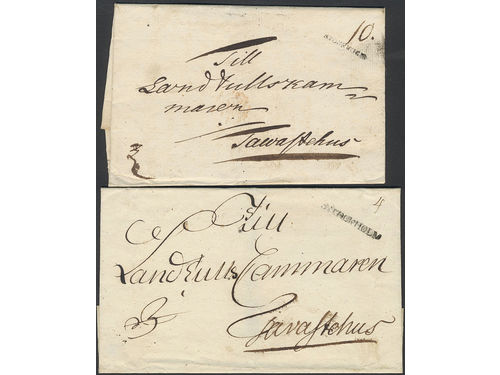 10.
STOCKHOLM
Till
Landtullskam-
maren
Tawastehus
4
STOCKHOLM
Till
LandtullsCammaren
Tavastehus